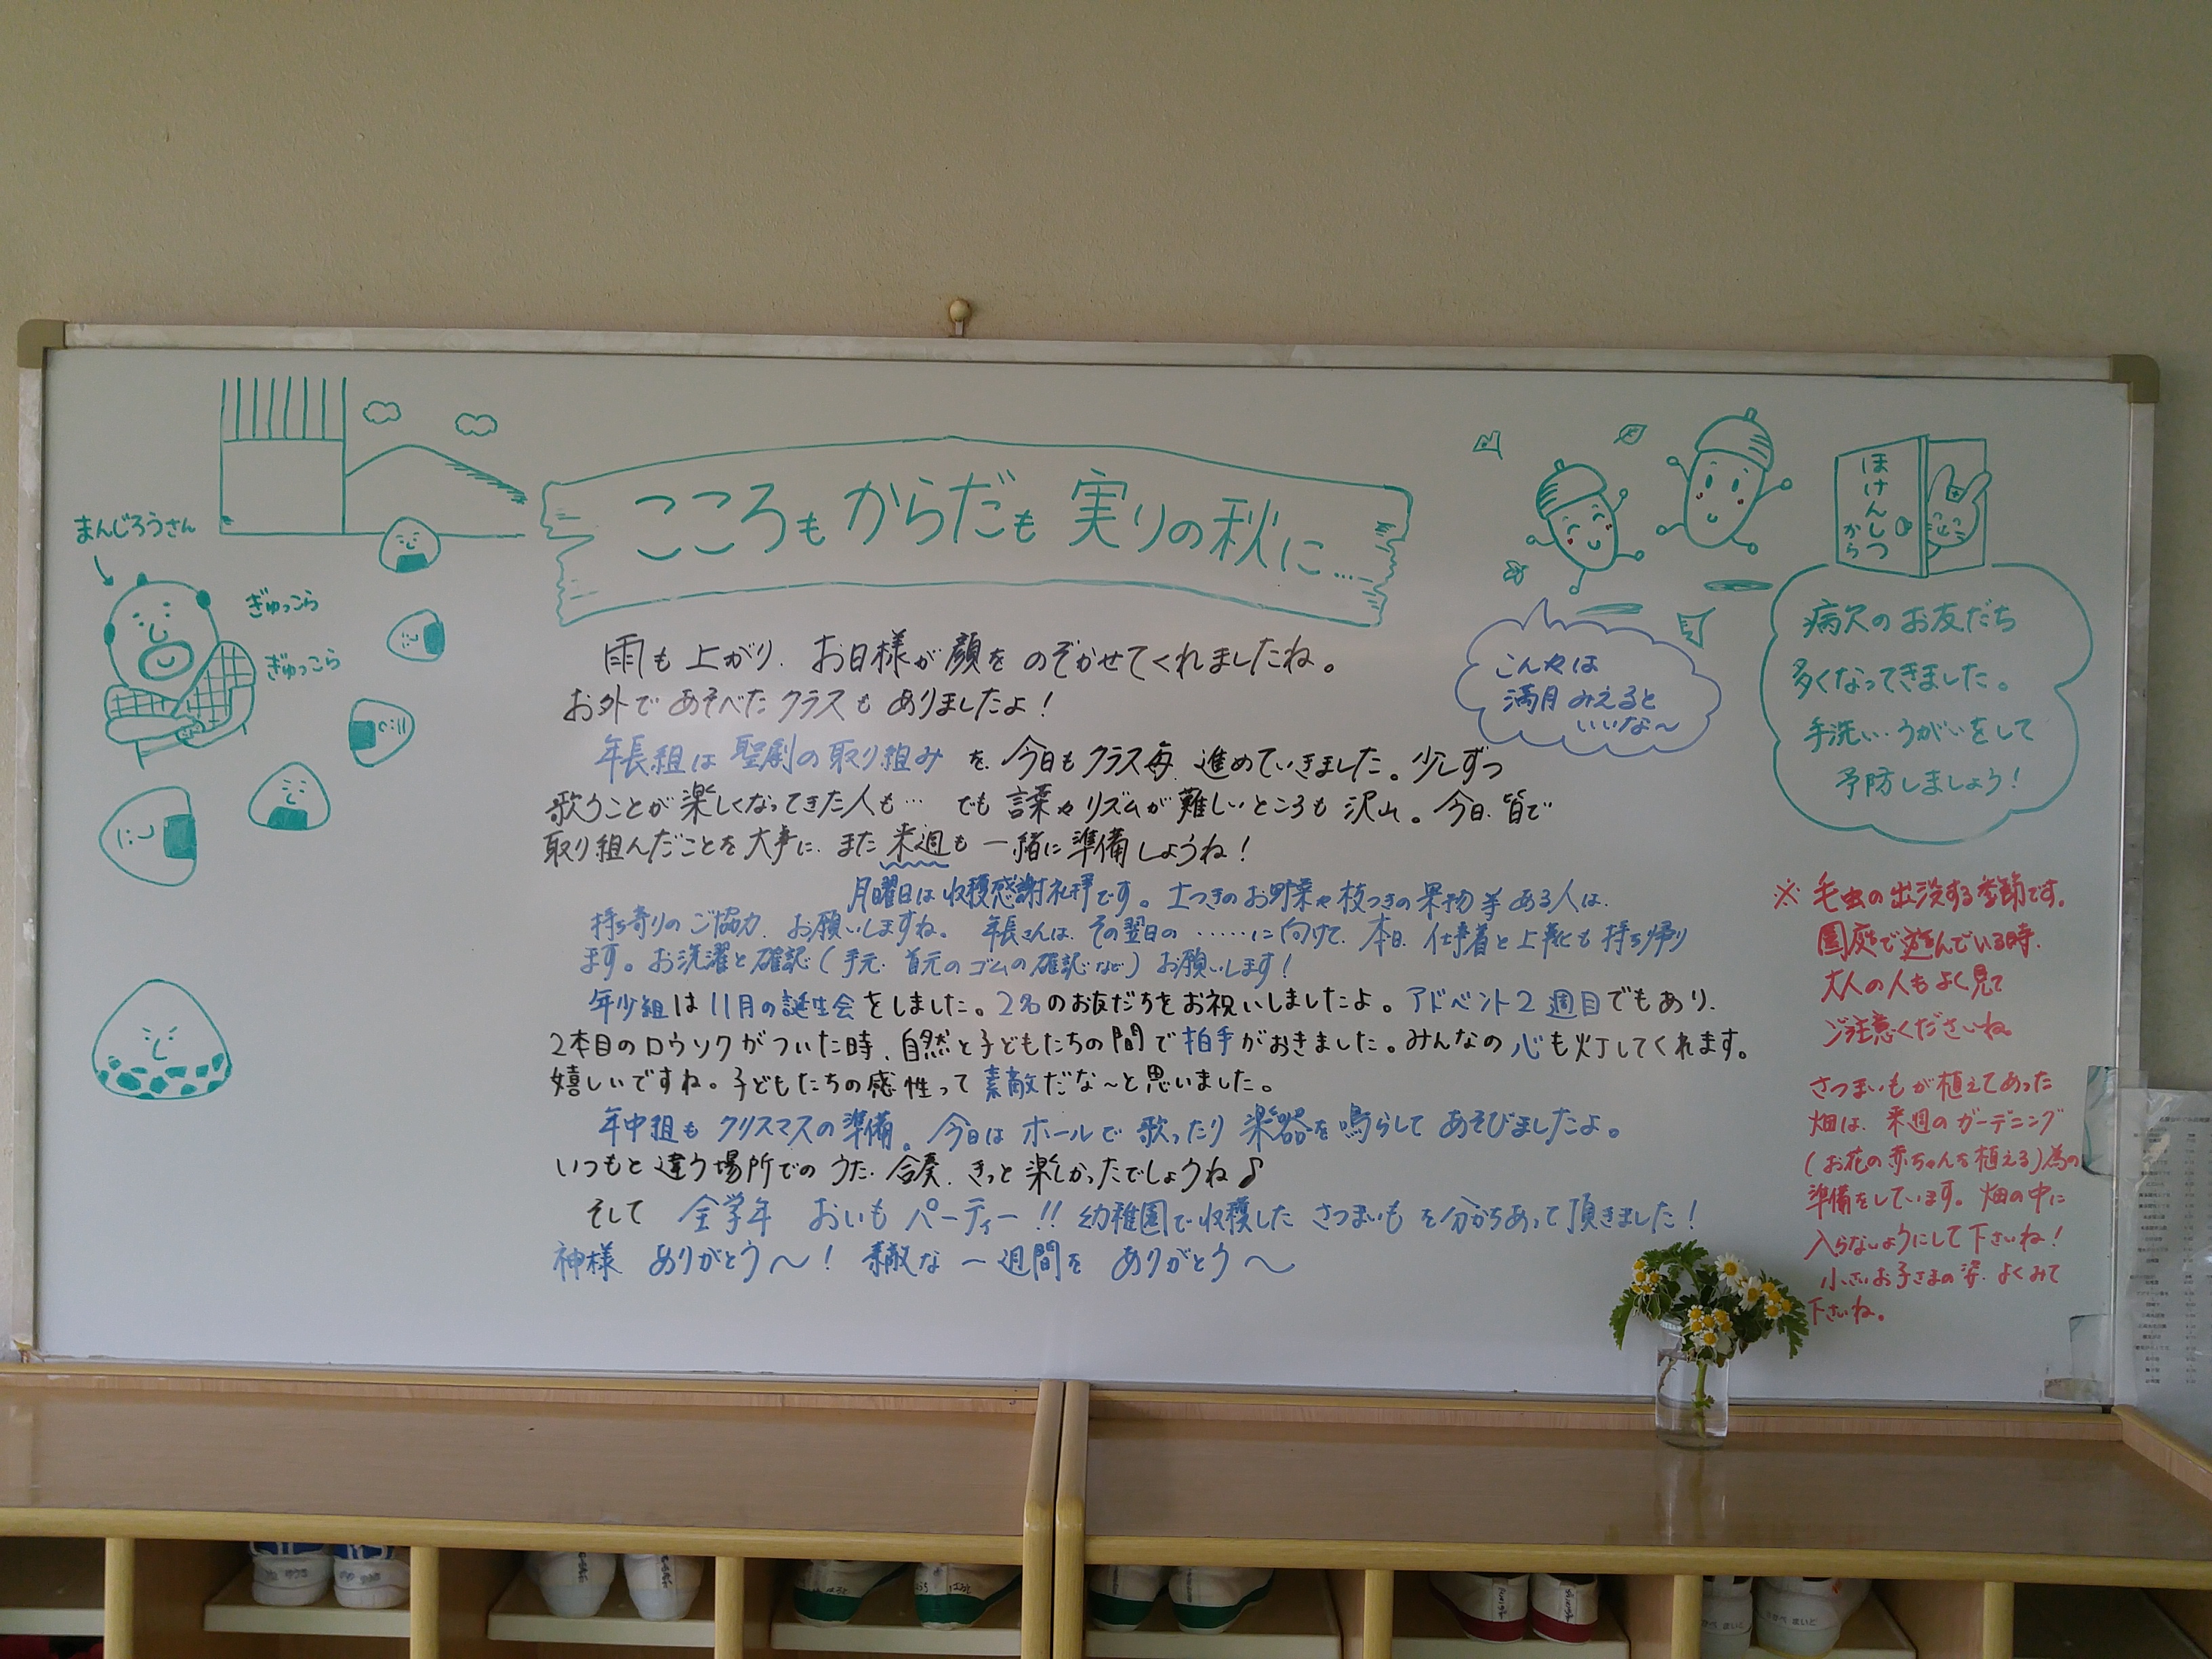 こころもからだも実りの秋に…
まんじろうさん
ぎゅっこら
ぎゅっこら
雨も上がり、お日様が顔をのぞかせてくれましたね。
お外であそべたクラスもありましたよ！
年長組は聖劇の取り組みを、今日もクラス毎、進めていきました。少しずつ
歌うことが楽しくなってきた人も… でも言葉やリズムが難しいところも沢山。今日、皆で
取り組んだことを大事に、また来週も一緒に準備しようね！
月曜日は収穫感謝礼拝です。土つきのお野菜や枝つきの果物等ある人は、
持ち寄りのご協力、お願いしますね。年長さんは、その翌日の……に向けて、本日、仕事着と上靴も持ち帰り
ます。お洗濯と確認（手元、首元のゴムの確認など）お願いします！
年少組は11月の誕生会をしました。2名のお友だちをお祝いしましたよ。アドベント2週目でもあり、
2本目のロウソクがついた時、自然と子どもたちの間で拍手がおきました。みんなの心も灯してくれます。
嬉しいですね。子どもたちの感性って素敵だな〜と思いました。
年中組もクリスマスの準備。今日はホールで歌ったり楽器を鳴らしてあそびましたよ。
いつもと違う場所でのうた、合奏、きっと楽しかったでしょうね♪
そして 全学年 おいもパーティー!! 幼稚園で収穫したさつまいもを分かちあって頂きました！
神様 ありがとう〜！ 素敵な一週間を ありがとう〜
こんやは
満月みえると
いいな〜
ほけんしつ
から
病欠のお友だち
多くなってきました。
手洗い・うがいをして
予防しましょう！
※ 毛虫の出没する季節です。
園庭で遊んでいる時、
大人の人もよく見て
ご注意くださいね。
さつまいもが植えてあった
畑は、来週のガーデニング
（お花の赤ちゃんを植える）為の
準備をしています。畑の中に
入らないようにして下さいね！
小さいお子さまの姿、よくみて
下さいね。